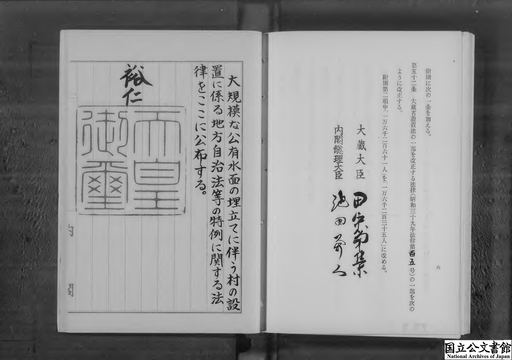 附則に次の一条を加える。
第五十二条　大蔵省設置法の一部を改正する法律(昭和三十九年法律第百五号)の一部を次の
ように改正する。
附則第二項中「一万六千二百六十一人」を「一万六千二百三十五人」に改める。
大蔵大臣　田中角榮
内閣総理大臣　池田勇人
大規模な公有水面の埋立てに伴う村の設
置に係る地方自治法等の特例に関する法
律をここに公布する。
裕仁
天皇
御璽
内閣
国立公文書館
National Archives of Japan